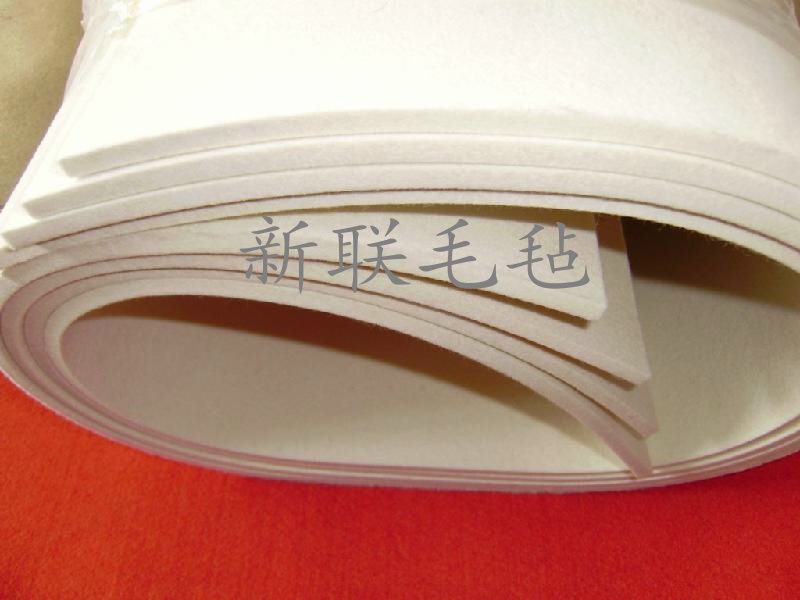 新联毛毡